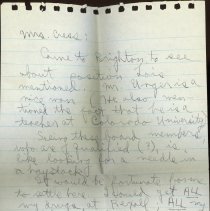 Mrs. Cress:
Came to Brighton to see
about position Doris
mentioned. Mr. Unger is a
nice man. (He also men-
tioned the fact that he is a
teacher at Colorado University
Seeing the board members,
who are qualified (?), is
like looking for a needle in
a haystack!
I would be fortunate
to settle here. I found it ALL
my things at Rexall, ALL my